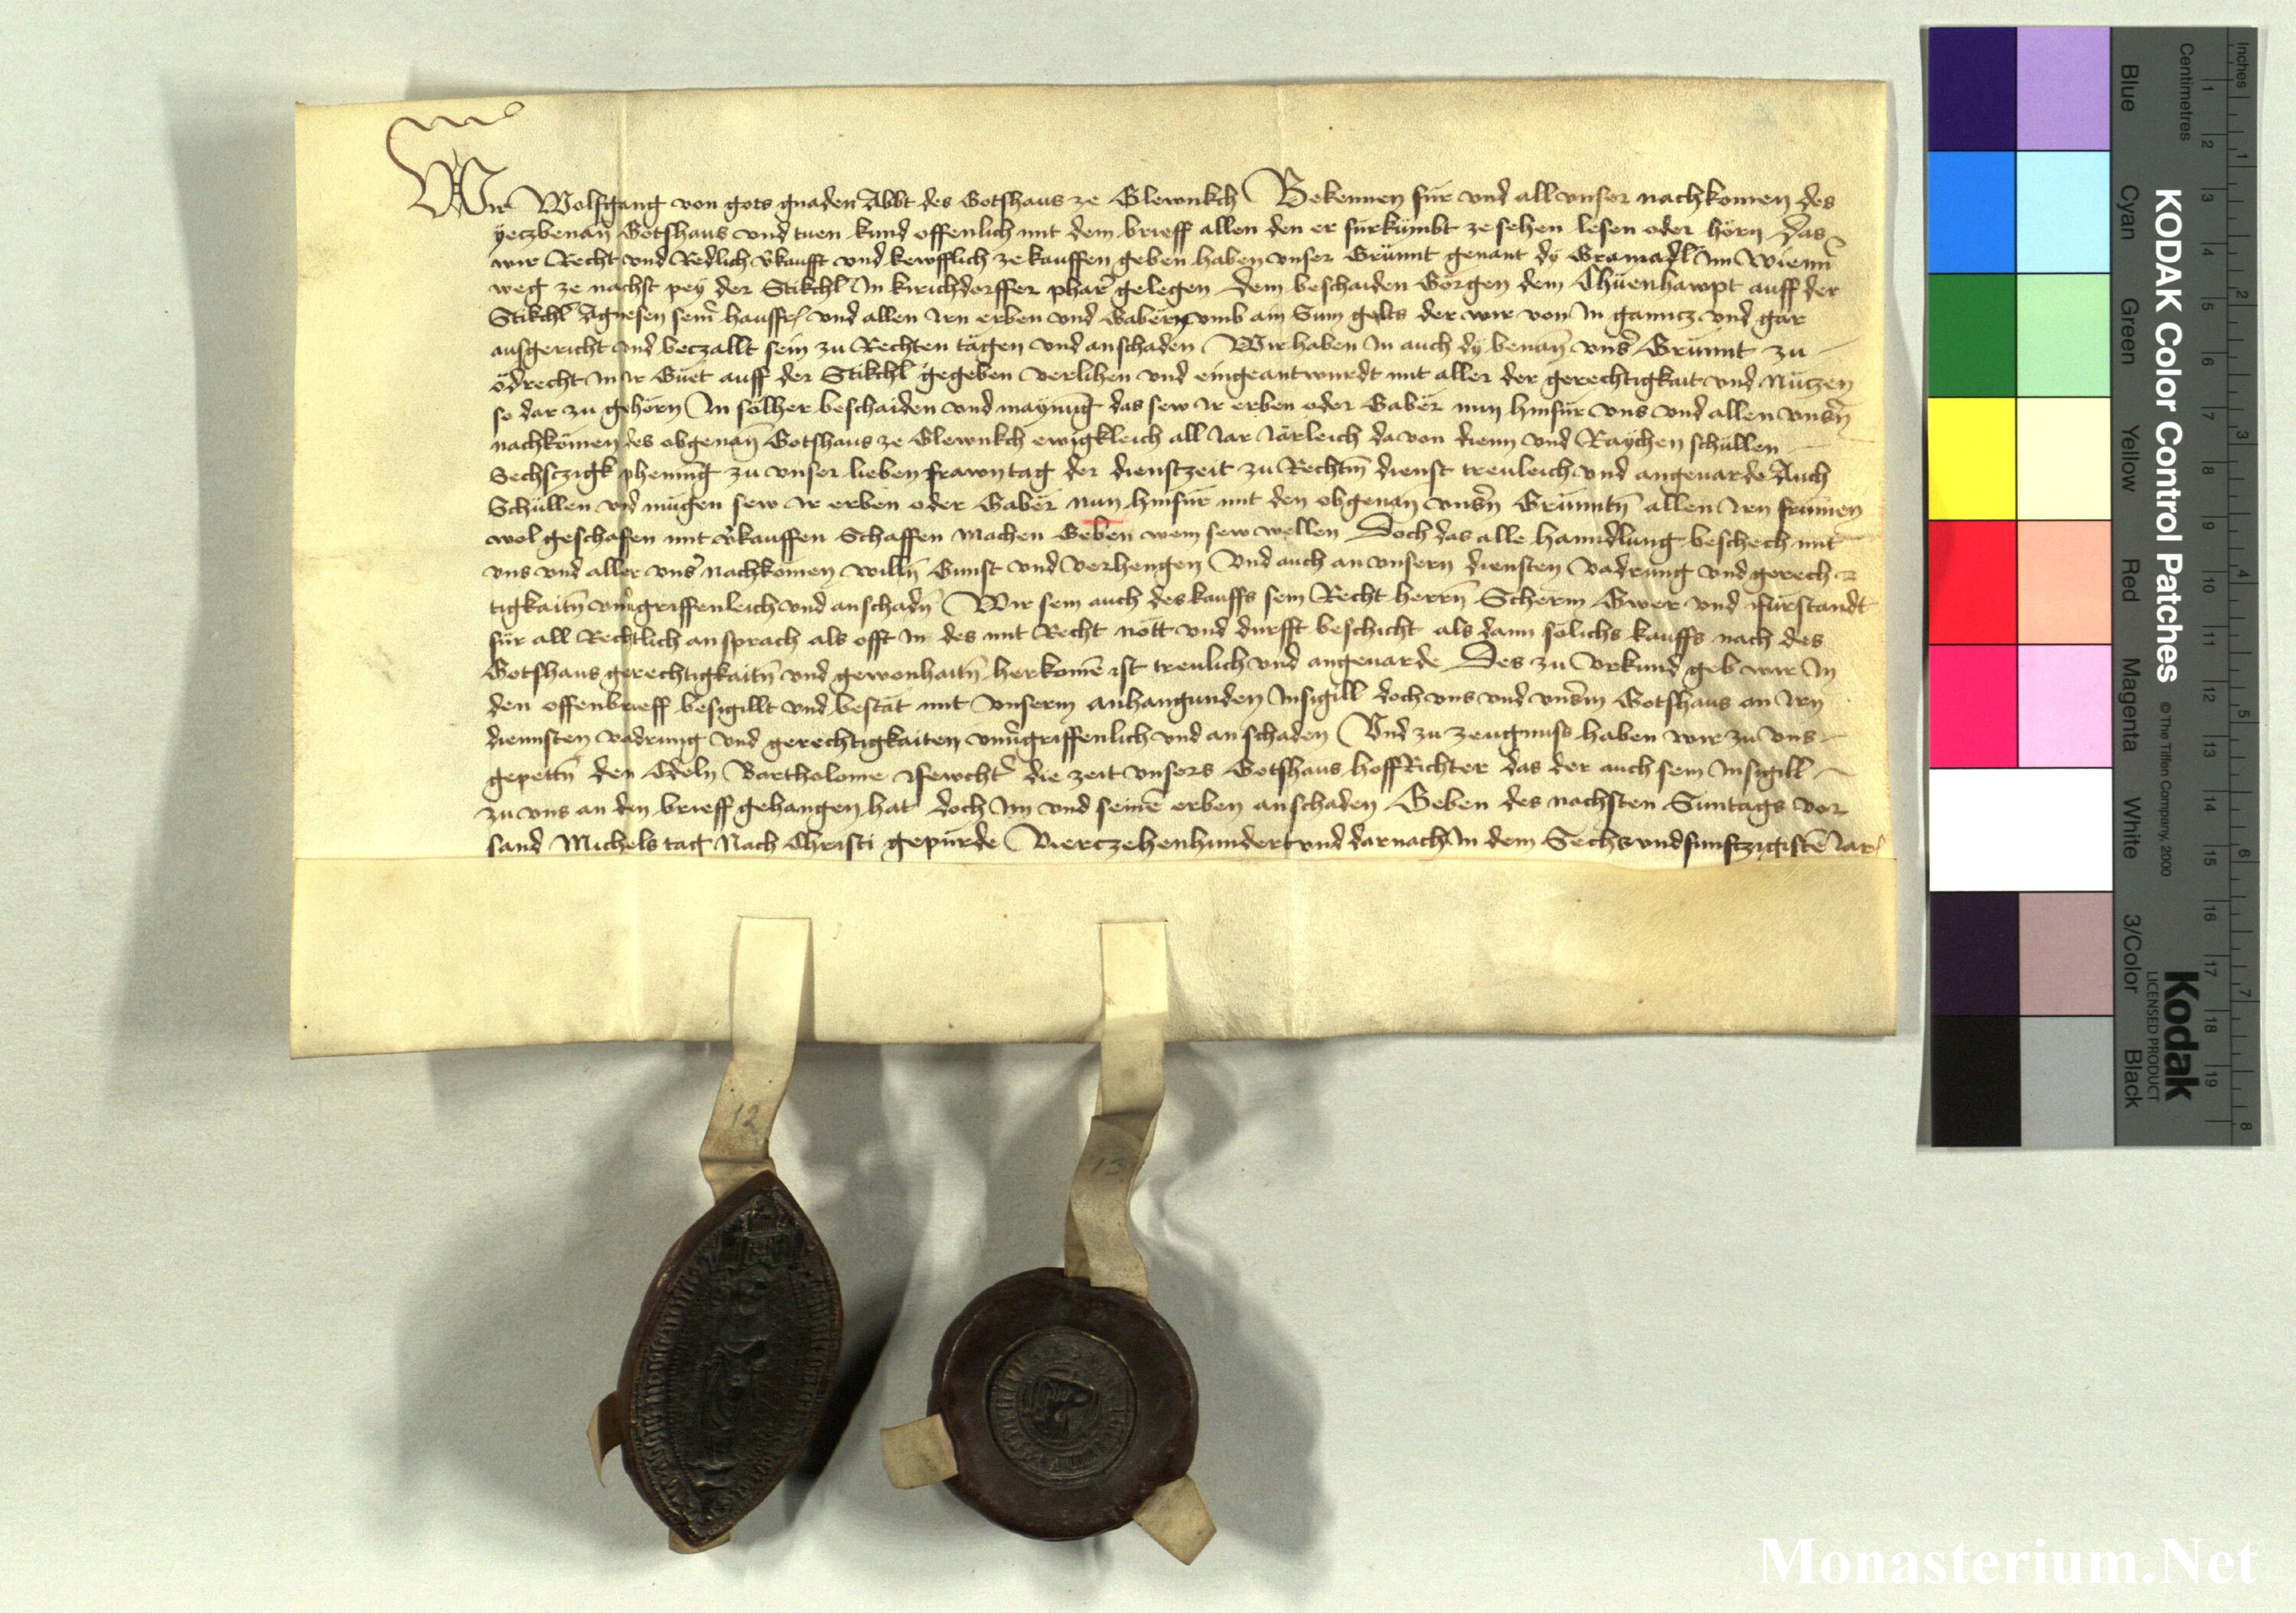 Wir Wolfgang von gots gnaden Abbt des Gotshaus ze Glewnkch Bekennen für und all unser nachkomen des
yeczbenan̄ Gotshaus und tuen kund offenlich mit dem brieff allen den er fürkümbt ze sehen lesen oder hörn Das
wir Recht und Redlich v̄kaufft und kewfflich ze kauffen geben haben unser Grünnt genant dy Gramadl Im Wienn̄
weg ze nachst pey der Stikchl In kirichdorffer pharr̄ gelegen dem beschaiden Görgen dem Chüenhawpt auff der
Stikchl Agnesen sein̄ hauffr̄ und allen Irn erben und Gabërn umb ain Sum gelts der wir von In ganncz und gar
ausgericht und beczallt sein zu Rechten tägen und an schaden Wir haben In auch dy benan̄ uns̄ Grünnt zu
ödrecht In Ir Guet auff der Stikchl gegeben verlihen und eingeantwurdt mit aller der gerechtigkait und Nuczen
so dar zu gehörn In sölher beschaiden und maynūg das sew Ir erben oder Gabër nun hinfür uns und allen unsn̄
nachkömen des obgenan̄ Gotshaus ze Glewnkch ewigkleich all Iar Iärleich da von dienn und Raychen schüllen
Sechsczigk phennīg zu unser lieben frawn tag der dienstzeit zu Rechtn̄ dienst treuleich und angeuarde Auch
Schüllen und mügen sew Ir erben oder Gabër nun hinfür mit den obgenan̄ unsn̄ Grünntn̄ allen Irn frümen
wol geschaffen mit v̄kauffen Schaffen machen Geben wem sew wellen Doch das alle hanndlung beschech mit
uns und aller uns̄ nachkömen willn̄ Gunst und verhengen Und auch an unsern diensten vadrung und gerech
tigkaitn̄ un̄griffenleich und an schadn̄ Wir sein auch des kauffs sein Recht herrn̄ Scherm Gwer und fürstandt
für all Rechtlich ansprach als offt In des mit Recht nott und durfft beschicht als dann sölichs kauffs nach des
Gotshaus gerechtigkaitn̄ und gewonhaitn̄ herkomē ist treulich und angeuarde Des zu Urkund geb wir In
den offenbrieff besigillt und bestät mit unserm anhangunden Insigill doch uns und unsm̄ Gotshaus an Irn
diennsten vadrung und gerechtigkaiten un̄griffenlich und an schaden Und zu zeugnuss haben wir zu uns
gepettn̄ den Edeln Bartholome fewcht̄ die zeit unsers Gotshaus hoffRichter das der auch sein Insigill
zu uns an den brieff gehangen hat doch Im und seinē erben an schaden Geben des nachsten Suntags vor
sand Michels tag Nach Christi gepürde Vierczehenhundert und darnach In dem Sechsundfunfczigistē Iar
12
13
KODAK Color Control Patches
© The Tiffen Company, 2000
Kodak
LICENSED PRODUCT
Blue Cyan Green Yellow Red Magenta White 3/Color Black
Inches
1 2 3 4 5 6 7 8
Centimetres
1 2 3 4 5 6 7 8 9 10 11 12 13 14 15 16 17 18 19
Monasterium.Net